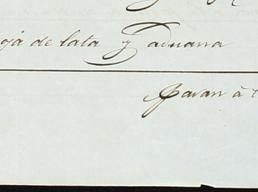 oja de lata y Aduana
Pasan á